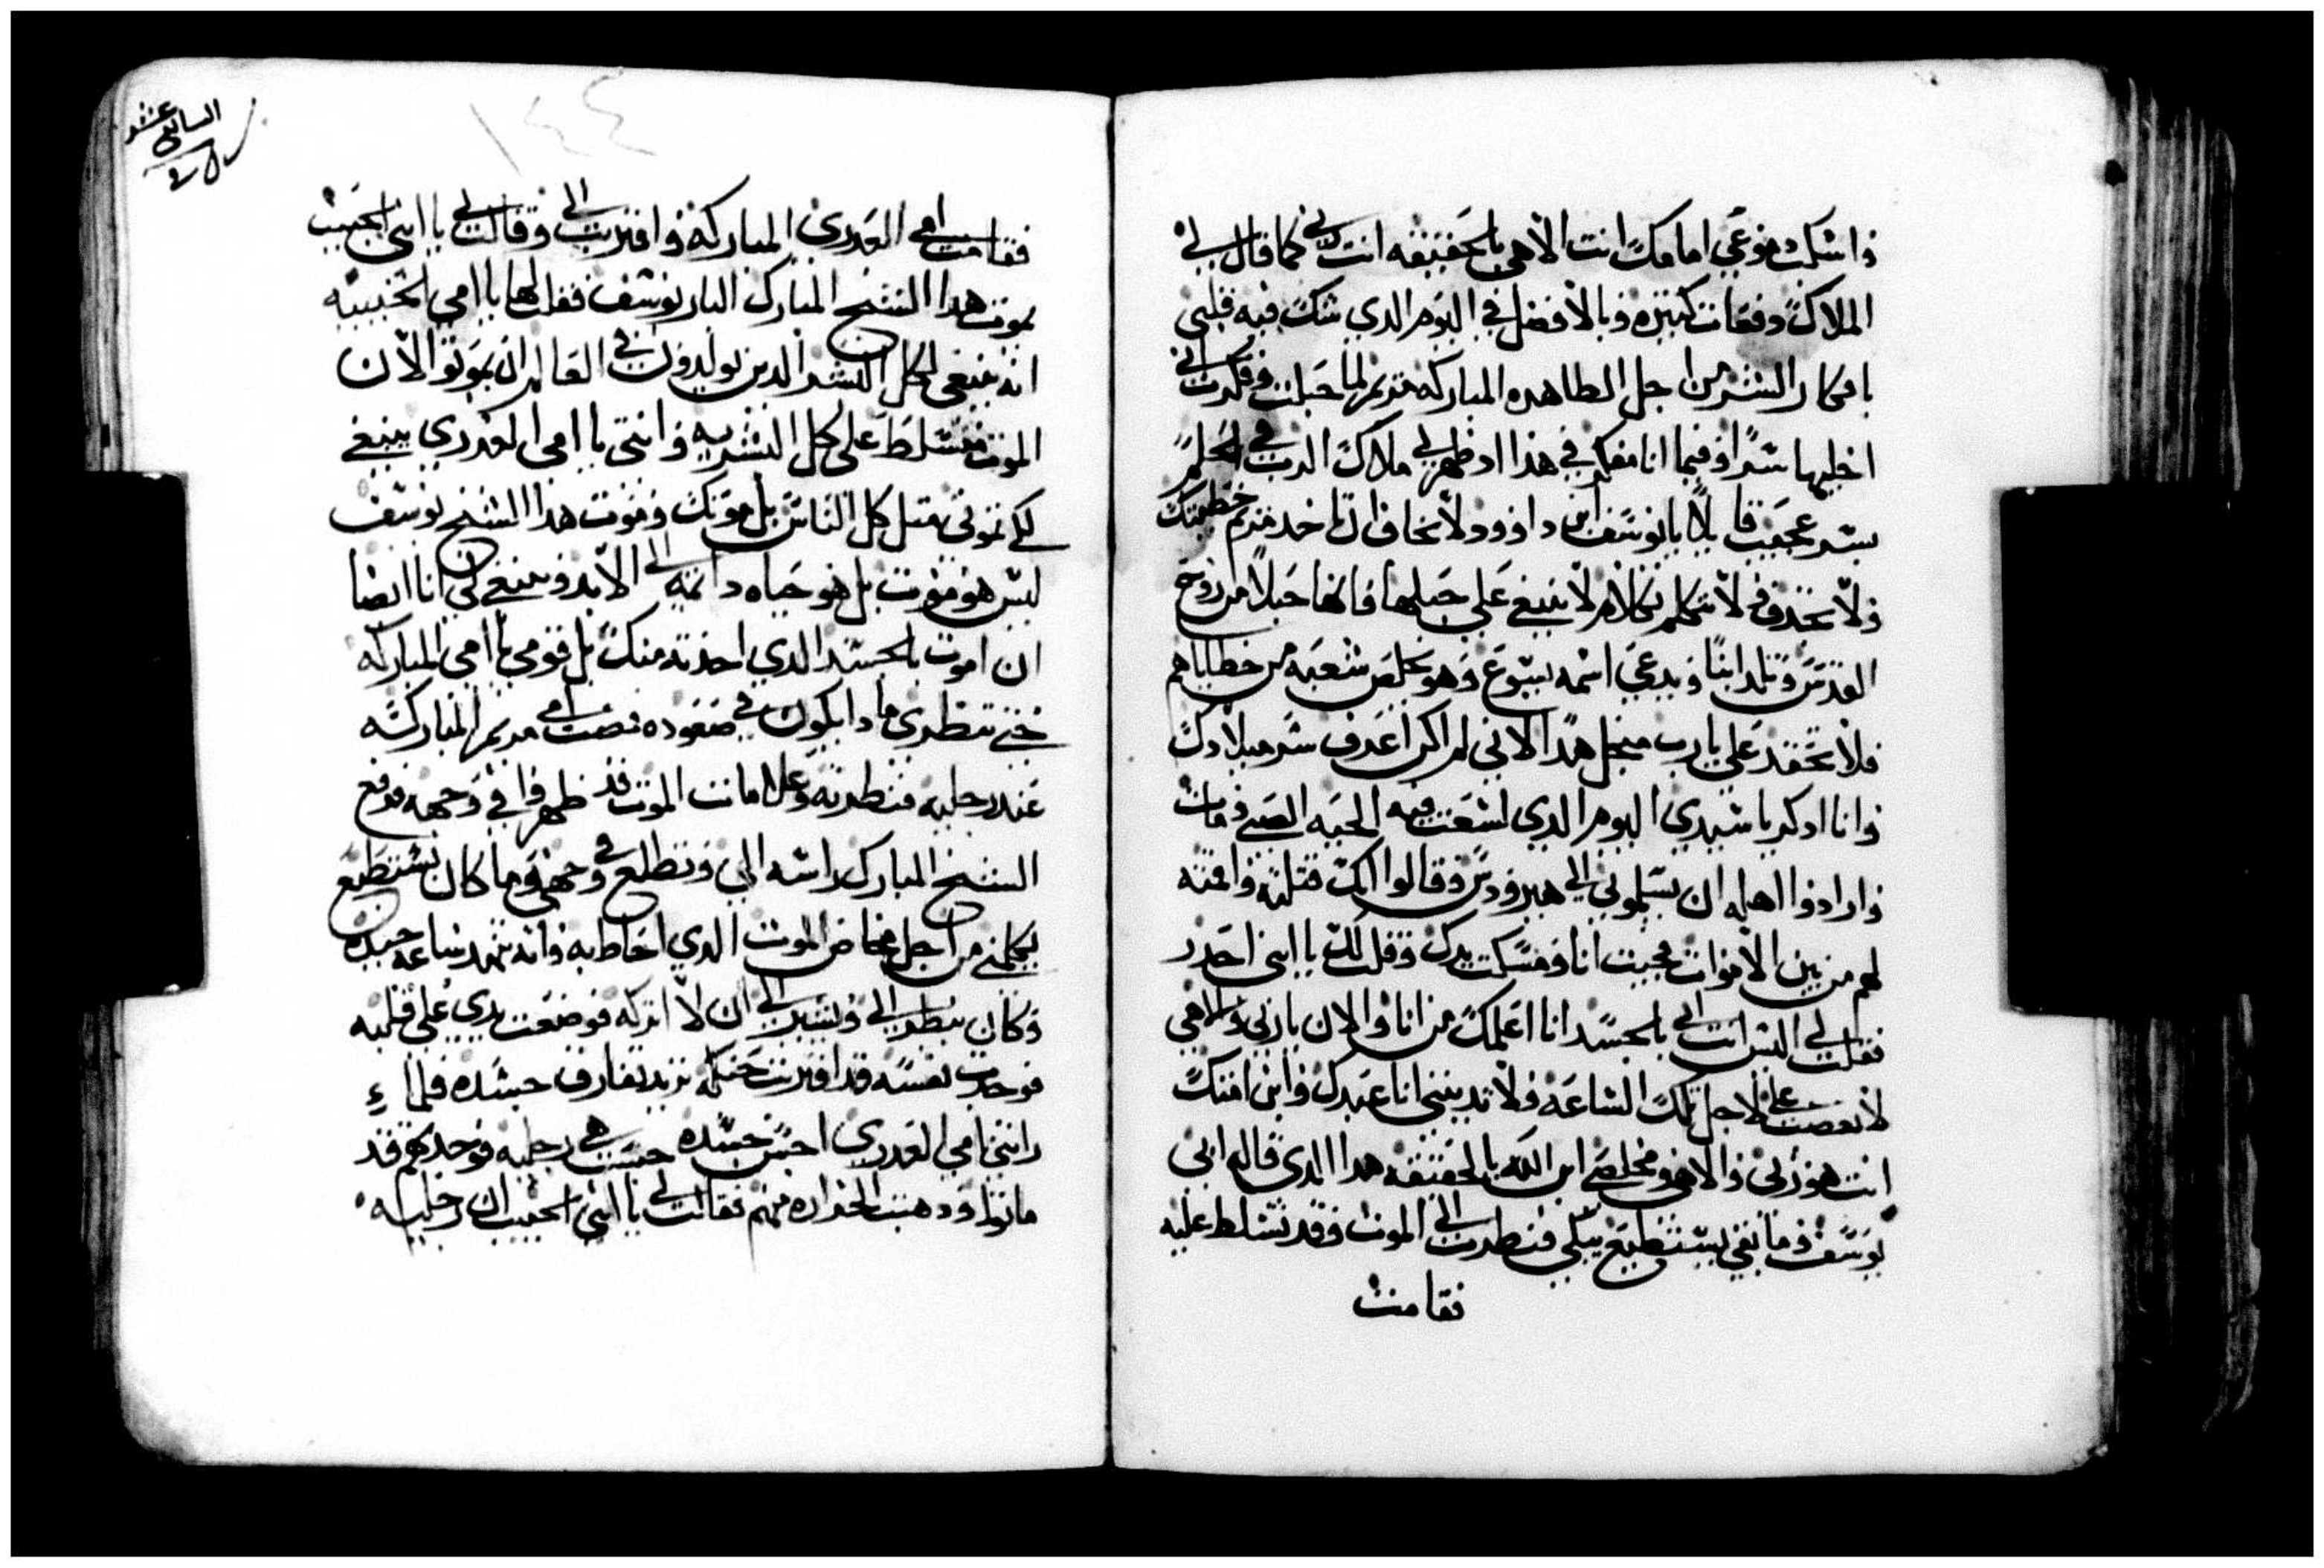 واسكب دموعي امامك انت الاهي بالحقيقه انت ربي كما قال لي
الملاك دفعات كثيره وبالافضل في اليوم الدي شك فيه قلبي
بافكار البشر من اجل الطاهره المباركه مريم لما حبلت وفكرت اني
اخليها سرا وفيما انا مفكر في هذا اد ظهر لي ملاك الرب في الحلم
بسر عجيب قايلا يا يوسف ابن داوود لا تخاف ان تاخد مريم خطيبتك
ولا تحزن ولا تتكلم بكلام لا ينبغي علي حبلها فانها حبلا من روح
القدس وتلد ابنا ويدعي اسمه يسوع وهو يخلص شعبه من خطاياهم
فلا تحقد علي يارب منجل هدا لاني لم اكن اعرف سر ميلادك
وانا ادكر يا سيدي اليوم الدي لسعت فيه الحيه الصبي ومات
وارادوا اهله ان يسلموني الي هيرودس وقالوا انك قتلته واقمته
لهم من بين الاموات فجيت انا ومسكت يدك وقلت لك يا ابني احدر
فقلت لي اليس انت ابي بالجسد انا اعلمك من انا والان يا ربي والاهي
لا تغضب علي لاجل تلك الساعه ولا تدينني انا عبدك وابن امتك
انت هو ربي والاهي ومخلصي ابن الله بالحقيقه هدا الدي قاله ابي
يوسف وما بقي يستطيع يبكي فنظرت الي الموت وقد تسلط عليه
فقامت
السابع عشر
١٤٤
فقامت امي العدري المباركه واقتربت الي وقالت لي يا ابني الحبيب
يموت هدا الشيخ المبارك البار يوسف فقلت لها يا امي الحبيبه
انه ينبغي لكل البشر الدين يولدون في العالم ان يموتو الان
الموت متسلط علي كل البشريه وانتي يا امي العدري ينبغي
لكي تموتي متل كل الناس بل موتك وموت هدا الشيخ يوسف
ليس هو موت بل هو حياه دائمه الي الابد وينبغي لي انا ايضا
ان اموت بالجسد الدي اخدته منك بل قومي يا امي المباركه
حتي تنظري مادا يكون في صعوده فمضت امي مريم المباركه
عند رجليه فنظرته وعلامات الموت قد ظهروا في وجهه فرفع
الشيخ المبارك راسه الي وتطلع في وجهي وما كان يستطيع
يكلمني من اجل مخاض الموت الدي احاط به وانه تنهد ساعه جيده
وكان ينظر الي ويشير الي ان لا اتركه فوضعت يدي علي قلبه
فوجدت نفسه قد اقتربت حنكه تريد تفارق جسده فلما
راتني امي العدري اجس جسده جست هي رجليه فوجدتهم قد
ماتوا ودهبت الحراره منهم فقالت لي يا ابني الحبيب ان رجليه